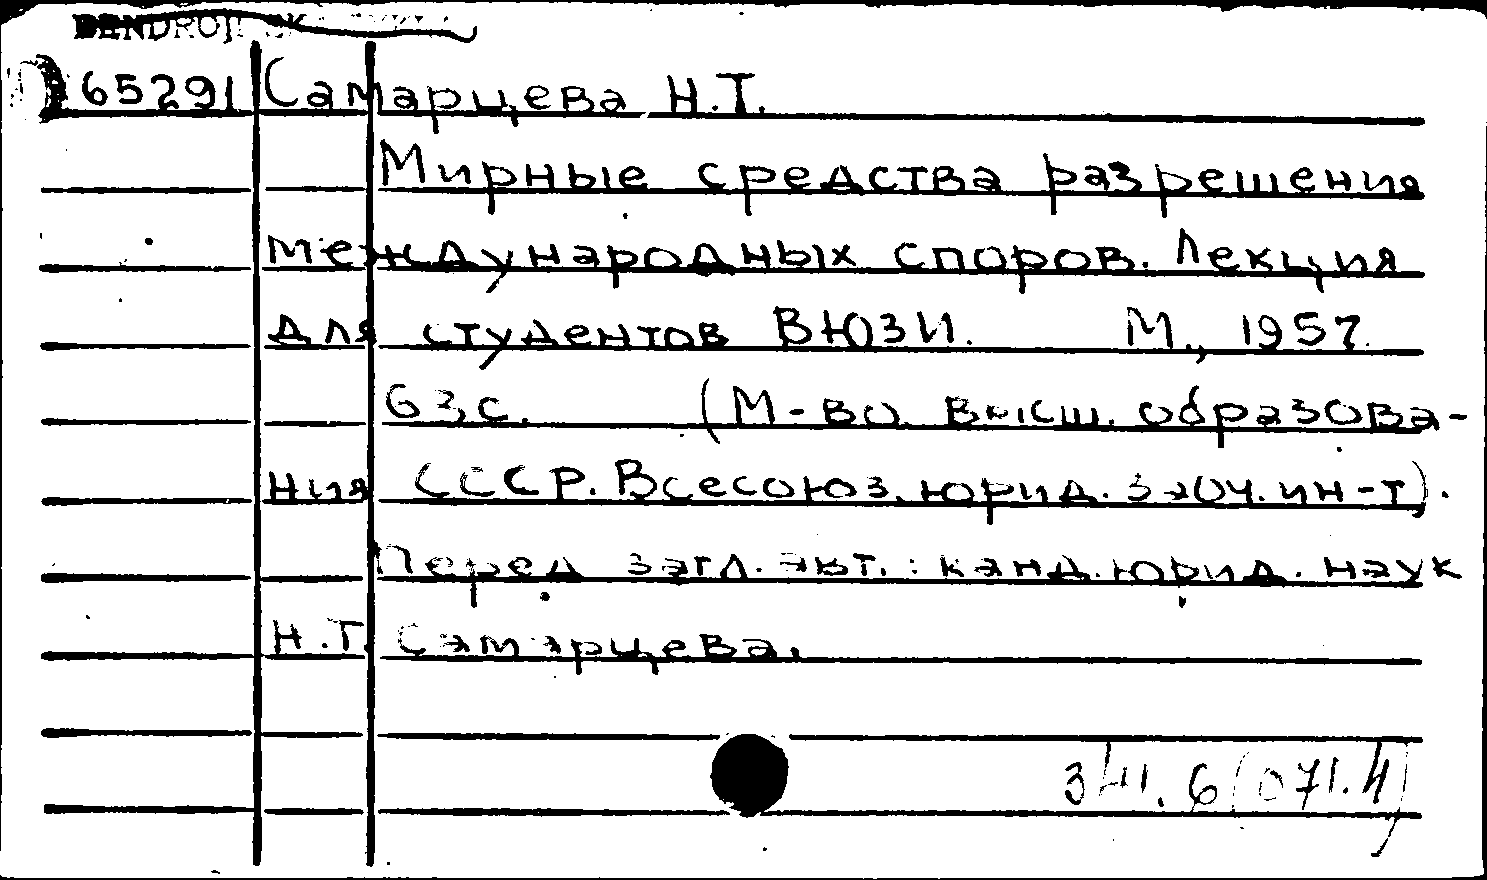 65291 Самарцева Н.Т.
Мирные средства разрешения
международных споров. Лекция
для студентов ВЮЗИ. М., 1957.
63 с. (М-во высш. образова-
ния СССР. Всесоюз. юрид. заоч. ин-т).
Перед загл. авт.: канд. юрид. наук
Н.Т. Самарцева.
341.6(071.4)